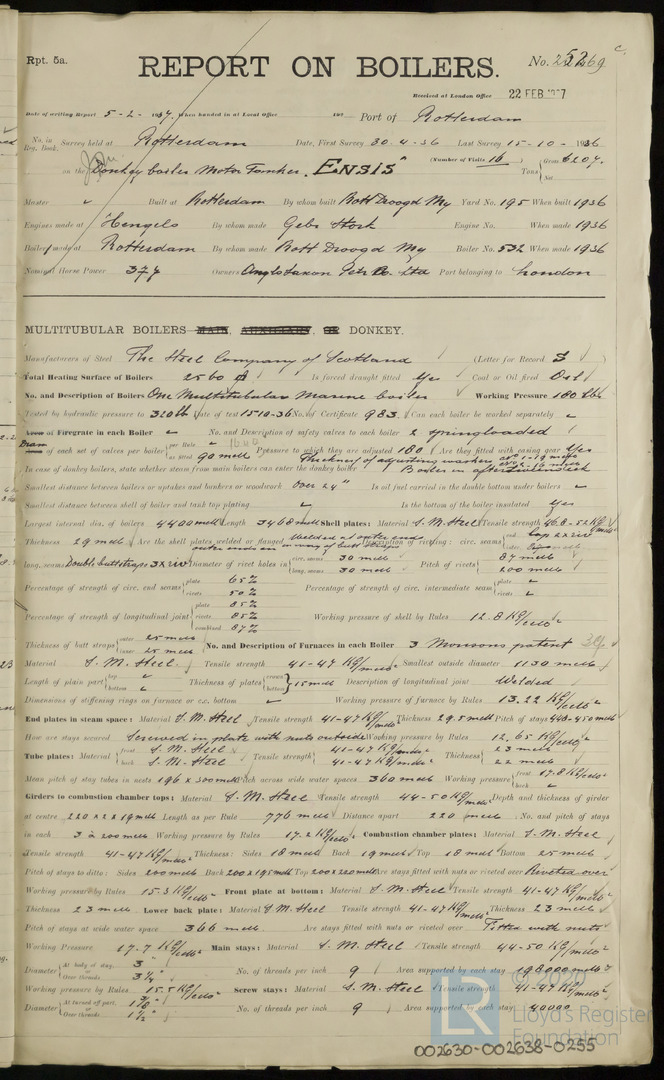 Rpt. 5a.
REPORT ON BOILERS.
No. 25269
Received at London Office 22 FEB 1937
Date of writing Report 5-2-1937 When handed in at Local Office 193 Port of Rotterdam
No. in Reg. Book. Survey held at Rotterdam Date, First Survey 30.4-36 Last Survey 15-10-1936
on the Donkey boiler Motor Tanker "ENSIS" (Number of Visits 16) Tons Gross 6207. Net
Master Built at Rotterdam By whom built Rott Droogd My Yard No. 195 When built 1936
Engines made at Hengelo By whom made Gebr Stork Engine No. When made 1936
Boilers made at Rotterdam By whom made Rott Droogd My Boiler No. 532 When made 1936
Nominal Horse Power 377 Owners Anglo Saxon Petr Co. Ltd Port belonging to London
MULTITUBULAR BOILERS MAIN, AUXILIARY, OR DONKEY.
Manufacturers of Steel The Steel Company of Scotland (Letter for Record S )
Total Heating Surface of Boilers 2560 Is forced draught fitted Yes Coal or Oil fired Oil
No. and Description of Boilers One Multitubular Marine boiler Working Pressure 180 lbs
Tested by hydraulic pressure to 320 lb Date of test 15-10-36 No. of Certificate 983 Can each boiler be worked separately
Area of Firegrate in each Boiler No. and Description of safety valves to each boiler 2 springloaded
Diam of each set of valves per boiler per Rule as fitted 90 mell Pressure to which they are adjusted 180 Are they fitted with easing gear Yes
Thickness of adjusting washers
In case of donkey boilers, state whether steam from main boilers can enter the donkey boiler Boiler in after
Smallest distance between boilers or uptakes and bunkers or woodwork over 24" Is oil fuel carried in the double bottom under boilers
Smallest distance between shell of boiler and tank top plating Is the bottom of the boiler insulated Yes
Largest internal dia. of boilers 4400 mell Length 3468 mell Shell plates: Material S. M. Steel Tensile strength 46.8-52 KG/mell²
Thickness 29 mell Are the shell plates welded or flanged Welded at outer end Description of riveting: circ. seams end lap 2x riv
outer ends
long. seams Double buttstraps 3x riv Diameter of rivet holes in circ. seams 30 mell long. seams 30 mell Pitch of rivets 87 mell 200 mell
Percentage of strength of circ. end seams plate 65% rivets 50% Percentage of strength of circ. intermediate seam plate rivets
Percentage of strength of longitudinal joint plate 85% rivets 85% combined 87% Working pressure of shell by Rules 12.8 KG/cell²
Thickness of butt straps outer 25 mell inner 25 mell No. and Description of Furnaces in each Boiler 3 Morisons patent
Material S. M. Steel Tensile strength 41-47 KG/mell² Smallest outside diameter 1130 mell
Length of plain part top bottom Thickness of plates crown bottom 15 mell Description of longitudinal joint Welded
Dimensions of stiffening rings on furnace or c.c. bottom Working pressure of furnace by Rules 13.22 KG/cell²
End plates in steam space: Material S. M. Steel Tensile strength 41-47 KG/mell² Thickness 29.5 mell Pitch of stays 440-450 mell
How are stays secured Screwed in plate with nuts outside Working pressure by Rules 12.65 KG/cell²
Tube plates: Material front S. M. Steel back S. M. Steel Tensile strength 41-47 KG/mell² 41-47 KG/mell² Thickness 23 mell 22 mell
Mean pitch of stay tubes in nests 196 x 300 mell Pitch across wide water spaces 360 mell Working pressure front 17.8 KG/cell² back
Girders to combustion chamber tops: Material S. M. Steel Tensile strength 44-50 KG/mell² Depth and thickness of girder
at centre 220 x 2 x 19 mell Length as per Rule 776 mell Distance apart 220 mell No. and pitch of stays
in each 3 à 200 mell Working pressure by Rules 17.2 KG/cell² Combustion chamber plates: Material S. M. Steel
Tensile strength 41-47 KG/mell² Thickness: Sides 18 mell Back 19 mell Top 18 mell Bottom 25 mell
Pitch of stays to ditto: Sides 200 mell Back 200 x 195 mell Top 200 x 220 mell Are stays fitted with nuts or riveted over Riveted over
Working pressure by Rules 15.3 KG/cell² Front plate at bottom: Material S. M. Steel Tensile strength 41-47 KG/mell²
Thickness 23 mell Lower back plate: Material S. M. Steel Tensile strength 41-47 KG/mell² Thickness 23 mell
Pitch of stays at wide water space 366 mell Are stays fitted with nuts or riveted over Fitted with nuts
Working Pressure 17.7 KG/cell² Main stays: Material S. M. Steel Tensile strength 44-50 KG/mell²
Diameter At body of stay, or Over threads 3" 3 1/4" No. of threads per inch 9 Area supported by each stay 198000 mell²
Working pressure by Rules 15.5 KG/cell² Screw stays: Material S. M. Steel Tensile strength 41-47 KG/mell²
Diameter At turned off part, or Over threads 1 1/2" No. of threads per inch 9 Area supported by each stay 40000
© 2020
LR Lloyd's Register Foundation
002630-002638-0255